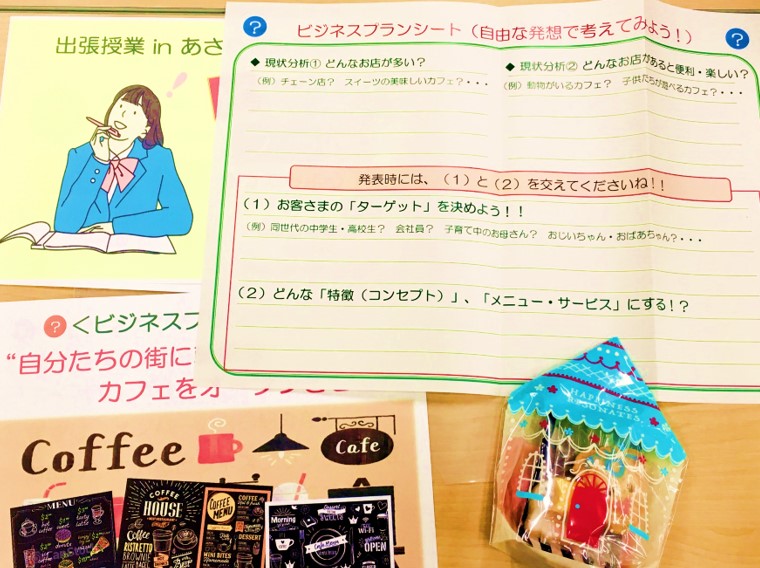 出張授業 in あさ
ビジネスプランシート（自由な発想で考えてみよう！）
◆ 現状分析① どんなお店が多い？
（例）チェーン店？ スイーツの美味しいカフェ？・・・
◆ 現状分析② どんなお店があると便利・楽しい？
（例）動物がいるカフェ？ 子供たちが遊べるカフェ？・・・
発表時には、（１）と（２）を交えてくださいね！！
（１）お客さまの「ターゲット」を決めよう！！
（例）同世代の中学生・高校生？ 会社員？ 子育て中のお母さん？ おじいちゃん・おばあちゃん？・・・
（２）どんな「特徴（コンセプト）」、「メニュー・サービス」にする！？
＜ビジネスプ
“自分たちの街に
カフェをオ
Coffee
Cafe
MENU
COFFEE
HOUSE
Coffee
RISTRETTO
COFFEE
MENU
MINI BITES
COFFEE
DESSERT
Morning
Cafe Menu
WI-FI
OPEN
HAPPINESS